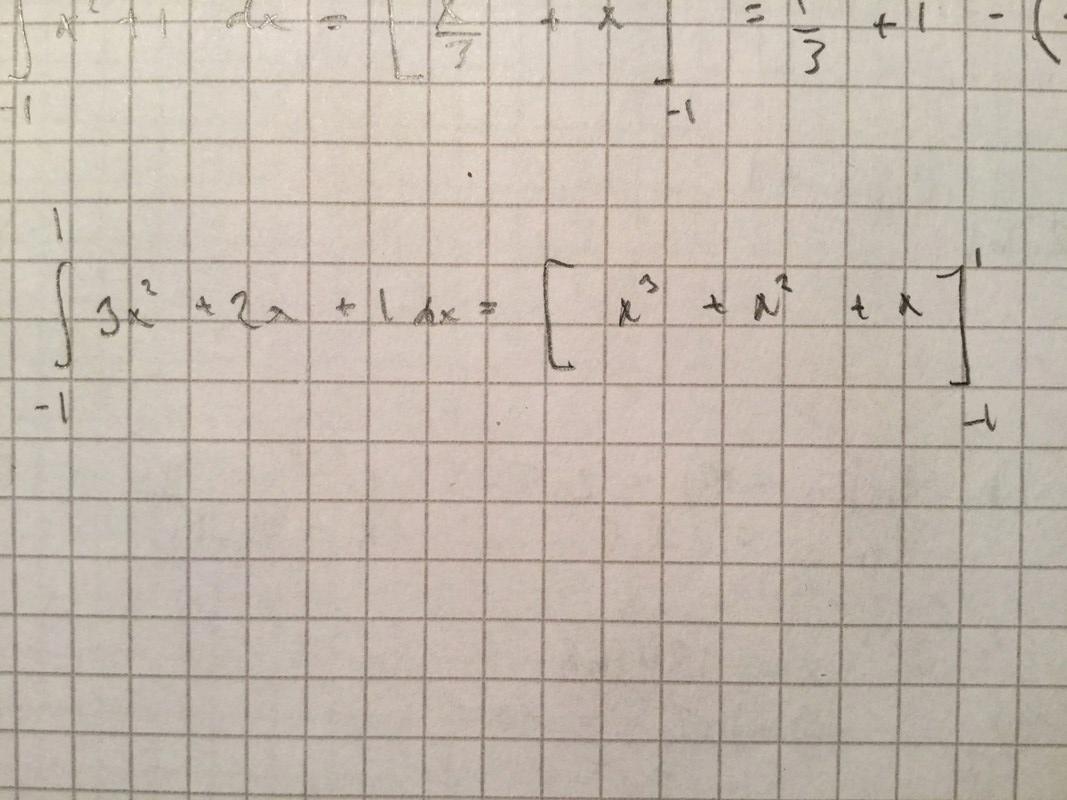 ∫ x² + 1 dx = [ x/3 + x ] = 1/3 + 1 - (
-1 -1
1 1
∫ 3x² + 2x + 1 dx = [ x³ + x² + x ]
-1 -1